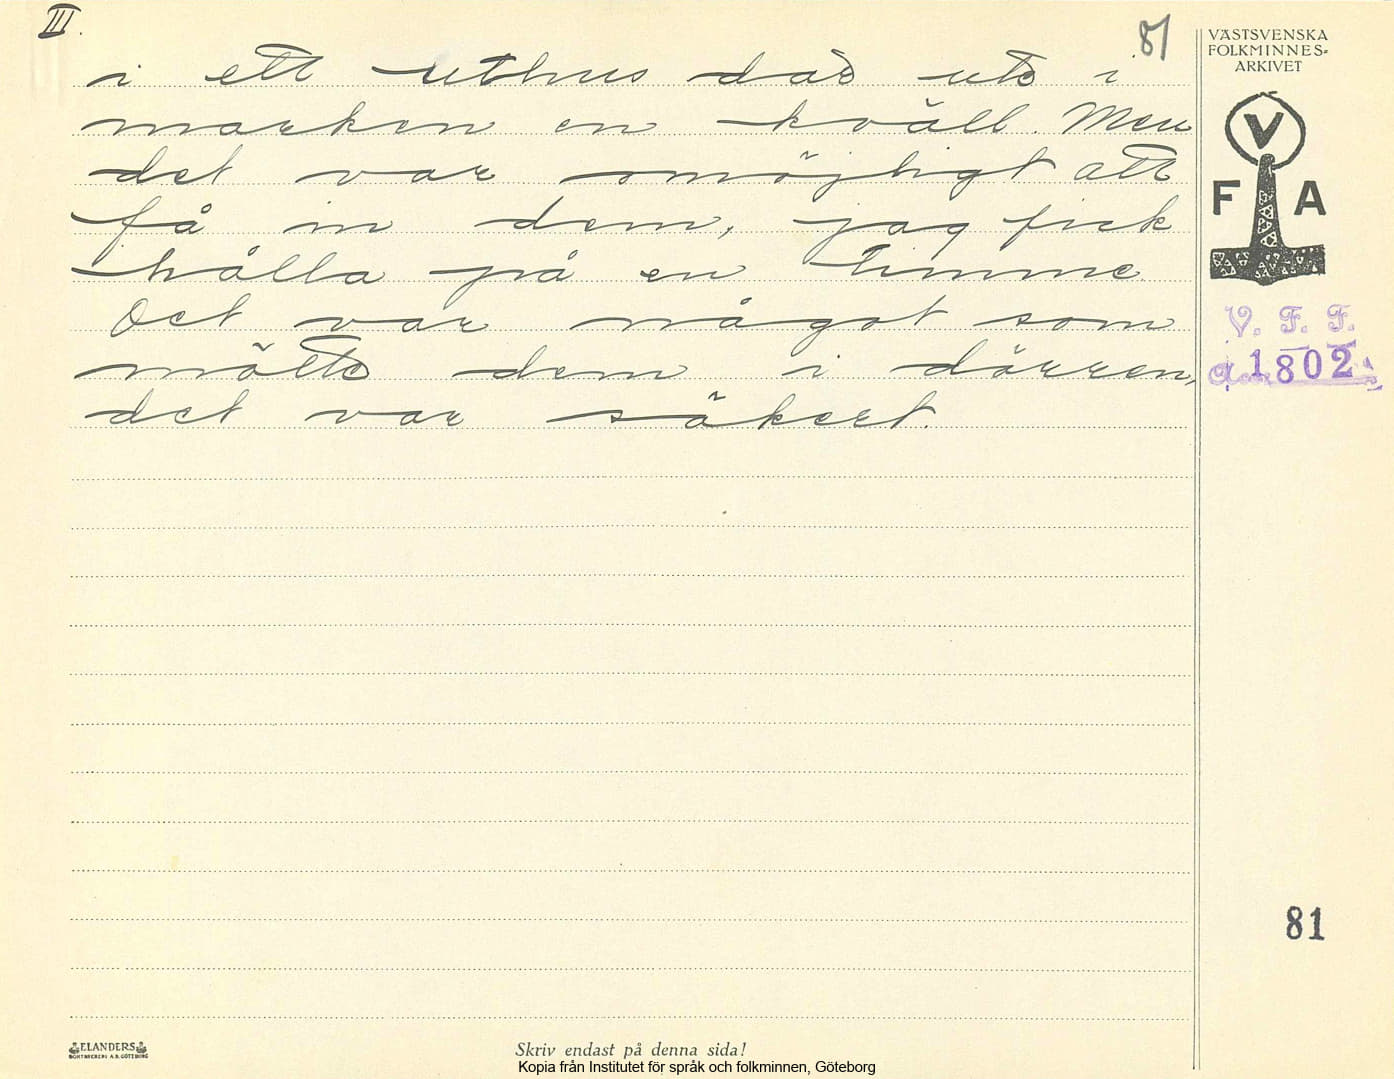 III.
81
i ett uthus där ute i
marken en kväll. Men
det var omöjligt att
få in dem, jag fick
hålla på en timme.
Det var något som
mötte dem i dörren,
det var säkert.
VÄSTSVENSKA
FOLKMINNES-
ARKIVET
V
F A
V. F. F.
1802
81
ELANDERS
BOKTRYCKERI A.B. GÖTEBORG
Skriv endast på denna sida!
Kopia från Institutet för språk och folkminnen, Göteborg